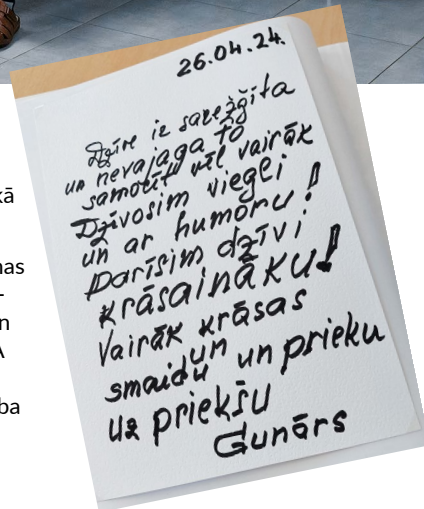 26.04.24.
Dzīve ir sarežģīta
un nevajaga to
samocīt vēl vairāk
Dzīvosim viegli
un ar humoru!
Darīsim dzīvi
krāsaināku!
Vairāk krāsas
un
smaidu un prieku
uz priekšu
Gunārs
kā
nas
-
n
A
ba